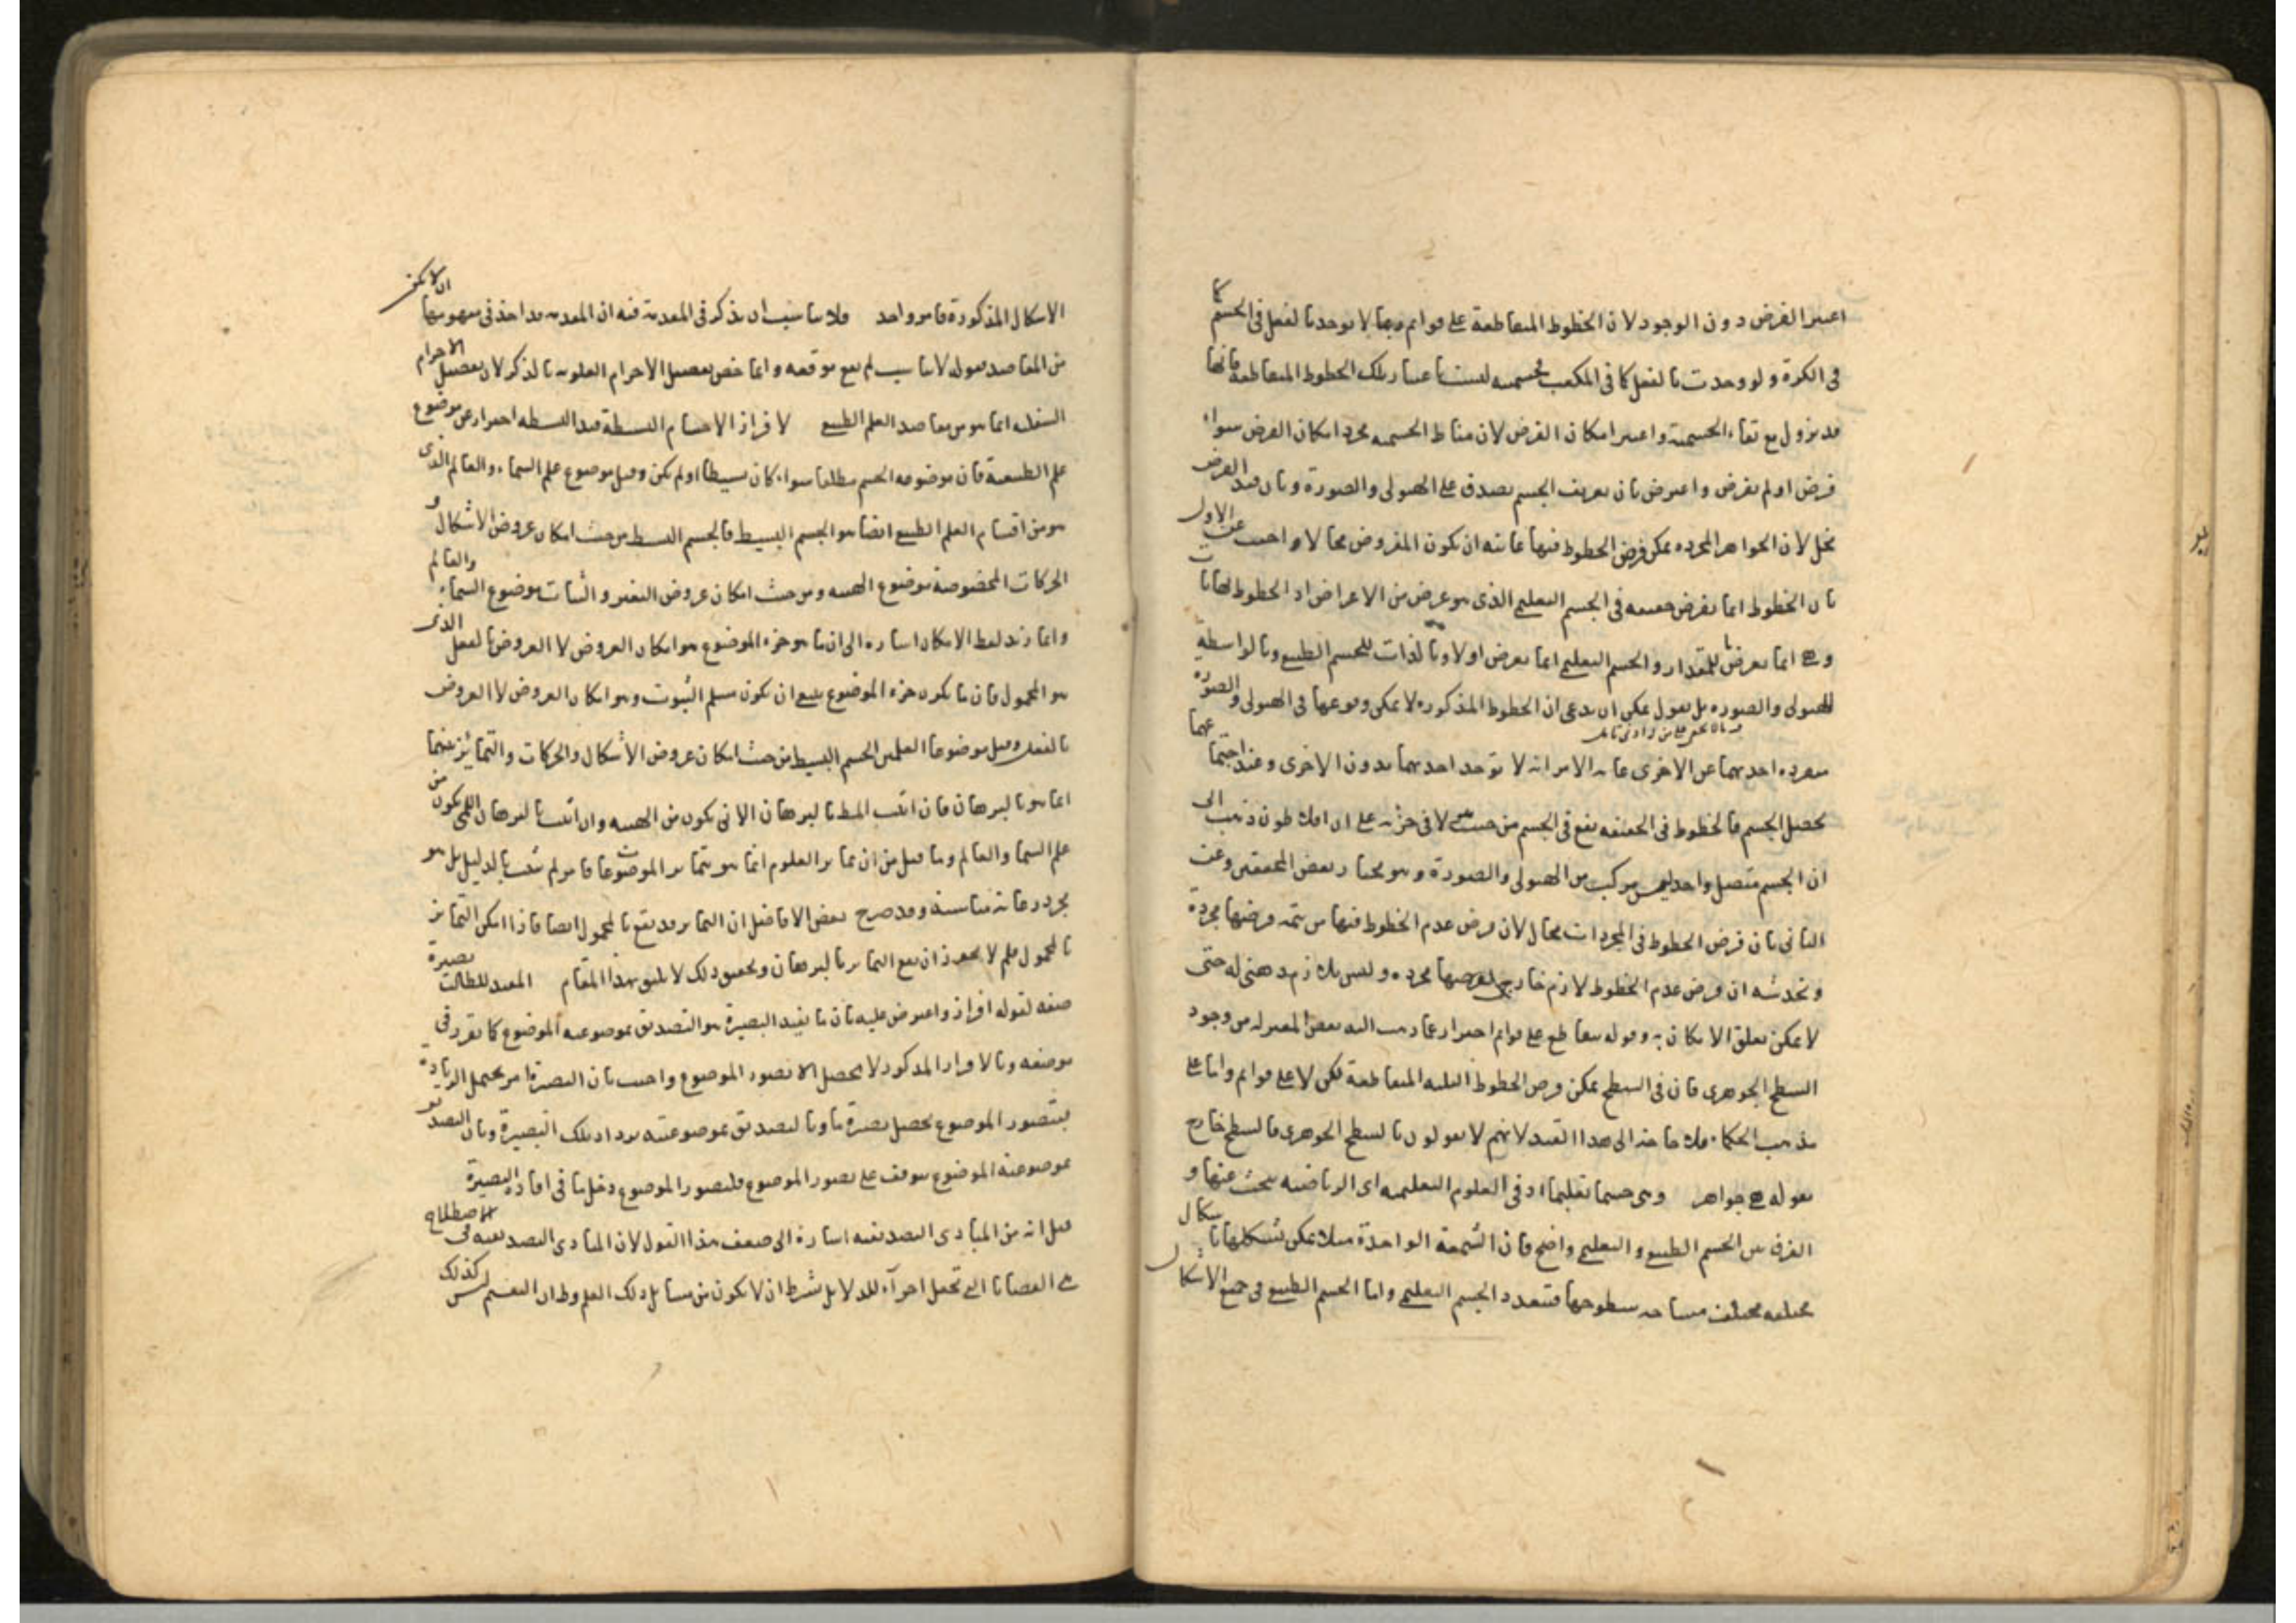 اعتبر الفرض دون الوجود لان الخطوط المتقاطعة على قوايم ربما لا توجد بالفعل في الجسم كما
في الكرة ولو وجدت بالفعل كما في المكعب فجسميته ليست باعتبار تلك الخطوط المتقاطعة فانها
قد تزول مع بقاء الجسمية واعتبر امكان الفرض لان مناط الجسمية مجرد امكان الفرض سواء
فرض او لم يفرض واعترض بان تعريف الجسم يصدق على الهيولى والصورة وبان قيد العرض
مخل لان الجواهر المجرده يمكن فرض الخطوط فيها غايته ان يكون المفروض محالا واجيب عن الاول
بان الخطوط انما تفرض حقيقه في الجسم التعليمي الذي هو عرض من الاعراض اذ الخطوط نهايات
وهي انما تعرض للمقدار والجسم التعليمي انما يعرض اولا وبالذات للجسم الطبيعي وبالواسطة
للهيولى والصوره بل نقول يمكن ان يدعى ان الخطوط المذكوره لا يمكن وقوعها في الهيولى والصورة
منفرده احديهما عن الاخرى غايه الامر انه لا توجد احديهما بدون الاخرى وعند اجتماعهما
يحصل الجسم فالخطوط في الحقيقه تقع في الجسم من حيث هو لا في جزئه على ان افلاطون ذهب الى
ان الجسم متصل واحد ليس مركب من الهيولى والصورة وهو مختار بعض المحققين وعن
الثاني بان فرض الخطوط في المجردات محال لان فرض عدم الخطوط فيها من تتمه فرضها مجردة
وتخدشه ان فرض عدم الخطوط لازم خارجي لفرضها مجرده وليس بلازم ذهني له حتى
لا يمكن تعلق الامكان به وقوله تتقاطع على قوايم احتراز عما ذهب اليه بعض المعتزله من وجود
السطح الجوهري فان في السطح يمكن فرض الخطوط الثلثه المتقاطعة لكن لا على قوايم واما على
مذهب الحكماء فلا حاجه الى هذا القيد لانهم لا يقولون بالسطح الجوهري فالسطح خارج
بقوله هي جواهر وسمي جسما تعليميا اذ في العلوم التعليميه اي الرياضيه يبحث عنها و
الفرق بين الجسم الطبيعي والتعليمي واضح فان الشمعة الواحدة مثلا يمكن تشكلها باشكال
مختلفه مختلف مساحه سطوحها فتتعدد الجسم التعليمي واما الجسم الطبيعي في جميع الاشكال
الاشكال المذكورة فامر واحد فلا يناسب ان يذكر في المقدمة فيه ان المقدمه قد اخذ في مفهومها ان لا يكون
من المقاصد فقوله لا يناسب لم يقع موقعه وانما خص تفصيل الاجرام العلويه بالذكر لان تفصيل الاجرام
السفليه انما هو من مقاصد العلم الطبيعي لافراز الاجسام البسيطة قيد البسيطه احتراز عن موضوع
علم الطبيعة فان موضوعه الجسم مطلقا سواء كان بسيطا او لم يكن وقيل موضوع علم السماء والعالم الذي
هو من اقسام العلم الطبيعي ايضا هو الجسم البسيط فالجسم البسيط من حيث امكان عروض الاشكال و
الحركات المخصوصة موضوع الهيئه ومن حيث امكان عروض التغير والثبات موضوع السماء والعالم
وانما زيد لفظ الامكان اشاره الى ان ما هو جزء الموضوع هو امكان العروض لا العروض بالفعل الذي
هو المحمول فان ما يكون جزء الموضوع ينبغي ان يكون مسلم الثبوت وهو امكان العروض لا العروض
بالفعل وقيل موضوعا العلمين الجسم البسيط من حيث امكان عروض الاشكال والحركات والتمايز بينهما
انما هو بالبرهان فان اثبت المط بالبرهان الاني يكون من الهيئه وان اثبت بالبرهان اللمي يكون من
علم السما والعالم وما قيل من ان تمايز العلوم انما هو بتمايز الموضوعات فامر لم يثبت بالدليل بل هو
مجرد رعاية مناسبة وقد صرح بعض الافاضل ان التمايز قد يقع بالمحمول ايضا فاذا امكن التمايز
بالمحمول فلم لا يجوز ان يقع التمايز بالبرهان وتحقيق ذلك لا يليق بهذا المقام المفيد للطالب بصيرة
صفه لقوله افراز واعترض عليه بان ما يفيد البصيرة هو التصديق بموضوعيه الموضوع كما تقرر في
موضعه وبالافراز المذكور لا يحصل الا تصور الموضوع واجيب بان البصيرة امر يحتمل الزيادة
فبتصور الموضوع تحصل بصيرة ما وبالتصديق بموضوعيته يزداد تلك البصيرة وبان التصديق
بموضوعية الموضوع يتوقف على تصور الموضوع فلتصور الموضوع دخل ما في افادة البصيرة
قيل انه من المبادى التصديقيه اشارة الى ضعف هذا القول لان المبادى التصديقيه في الاصطلاح
هي القضايا التي تجعل اجزاء للدلايل بشرط ان لا يكون من مسايل ذلك العلم وظ ان التقسيم ليس كذلك